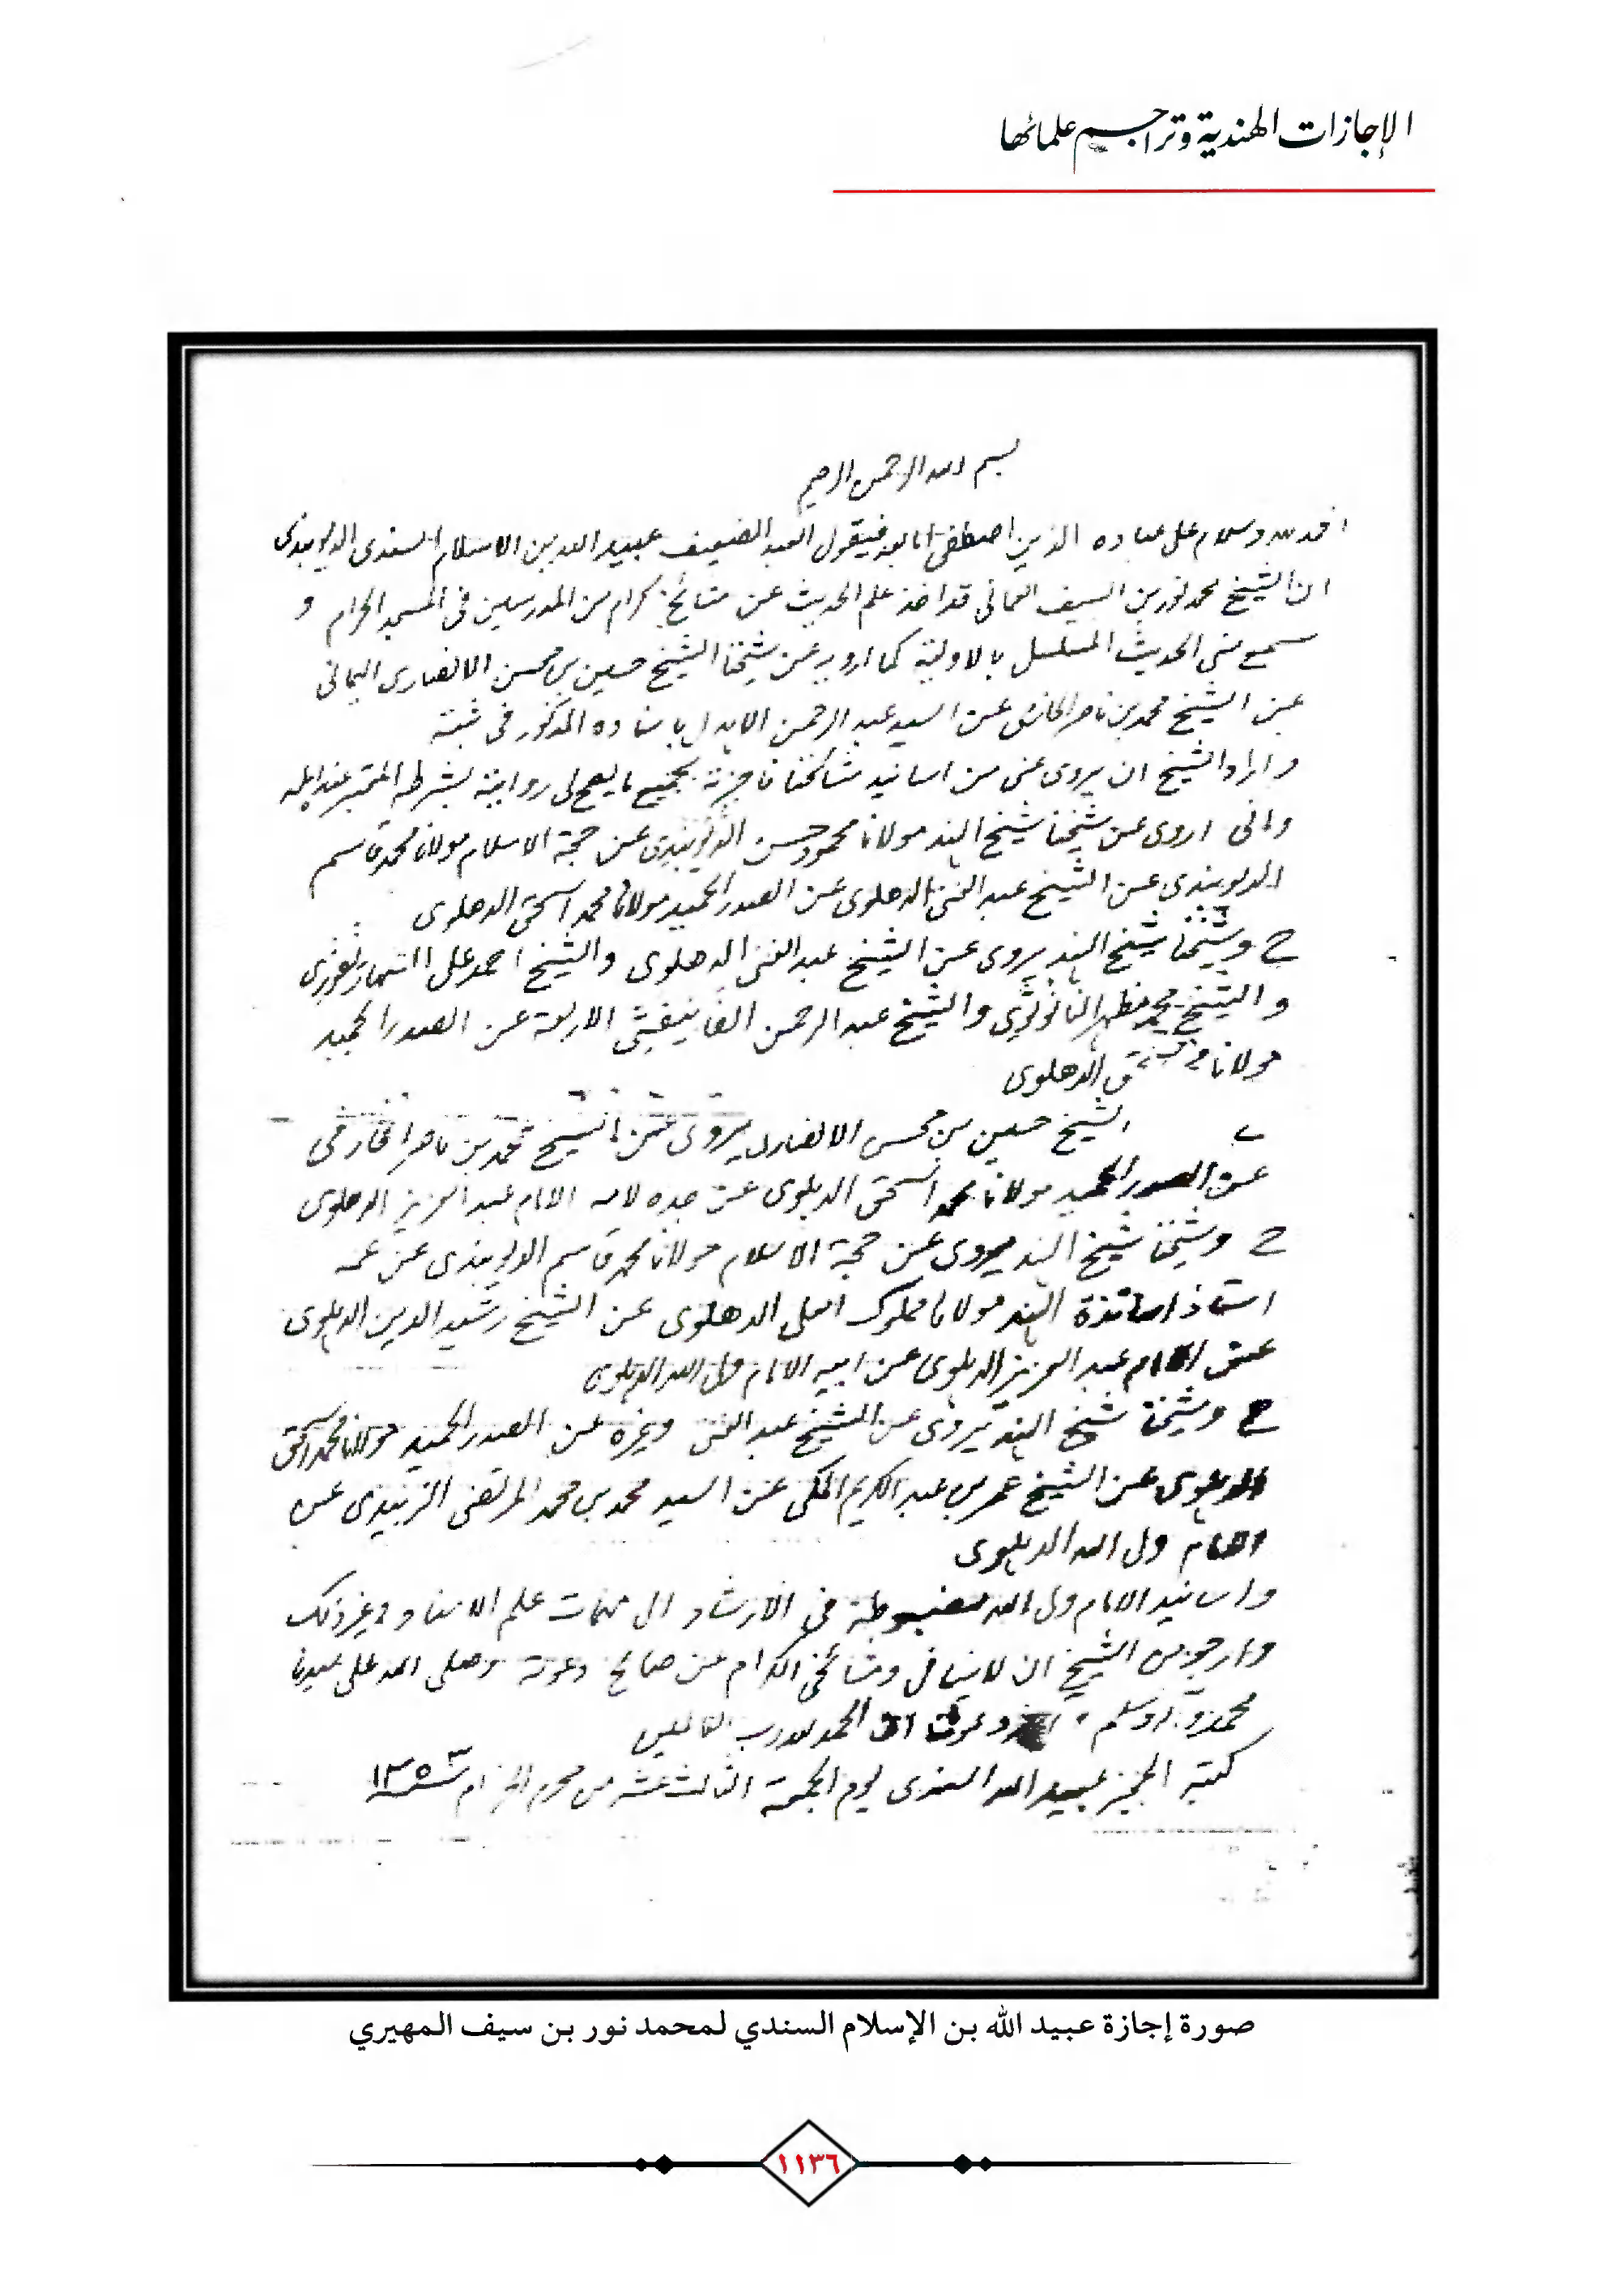 الإجازات الهندية وتراجم علمائها
بسم الله الرحمن الرحيم
الحمد لله وسلام على عباده الذين اصطفى اما بعد فيقول العبد الضعيف عبيد الله بن الاسلام السندى الديوبندى
ان الشيخ محمد نور بن السيف العمانى قد اخذ علم الحديث عن مشائخ كرام من المدرسين فى المسجد الحرام و
سمع منى الحديث المسلسل بالاولية كما ارويه عن شيخنا الشيخ حسين بن محسن الانصارى اليمانى
عن الشيخ محمد بن ناصر الحازمى عن السيد عبد الرحمن الاهدل باسناده المذكور فى ثبته
واراد الشيخ ان يروى عنى من اسانيد مشائخنا فاجزته بجميع ما يصح لى روايته بشرطه المعتبر عند اهله
وانى اروى عن شيخنا شيخ الهند مولانا محمود حسن الديوبندى عن حجة الاسلام مولانا محمد قاسم
الديوبندى عن الشيخ عبد الغنى الدهلوى عن الصدر الحميد مولانا محمد اسحق الدهلوى
ح وشيخنا شيخ الهند يروى عن الشيخ عبد الغنى الدهلوى والشيخ احمد على السهارنفورى
و الشيخ محمد مظهر النانوتوى والشيخ عبد الرحمن الفانيفتى الاربعة عن الصدر الحميد
مولانا الدهلوى
الشيخ حسين بن محسن الانصارى يروى عن الشيخ محمد بن ناصر الحازمى
عن الصدر الحميد مولانا محمد اسحق الدهلوى عن جده لامه الامام عبد العزيز الدهلوى
ح وشيخنا شيخ الهند يروى عن حجة الاسلام مولانا محمد قاسم الديوبندى عن عمه
استاذ اساتذة الهند مولانا مملوك العلى الدهلوى عن الشيخ رشيد الدين الدهلوى
عن الامام عبد العزيز الدهلوى عن ابيه الامام ولى الله الدهلوى
ح وشيخنا شيخ الهند يروى عن الشيخ عبد الغنى وغيره عن الصدر الحميد مولانا محمد اسحق
الدهلوى عن الشيخ عمر بن عبد الكريم المكى عن السيد محمد بن محمد المرتضى الزبيدى عن
الامام ولى الله الدهلوى
واسانيد الامام ولى الله مضبوطة فى الارشاد الى مهمات علم الاسناد وغير ذلك
وارجو من الشيخ ان لا ينسانى ومشائخى الكرام عن صالح دعوته وصلى الله على سيدنا
محمد وآله وسلم دعوانا ان الحمد لله رب العالمين
كتبه المجيز عبيد الله السندى يوم الجمعة الثالث عشر من محرم الحرام ١٣٥٣
صورة إجازة عبيد الله بن الإسلام السندي لمحمد نور بن سيف المهيري
١١٣٦